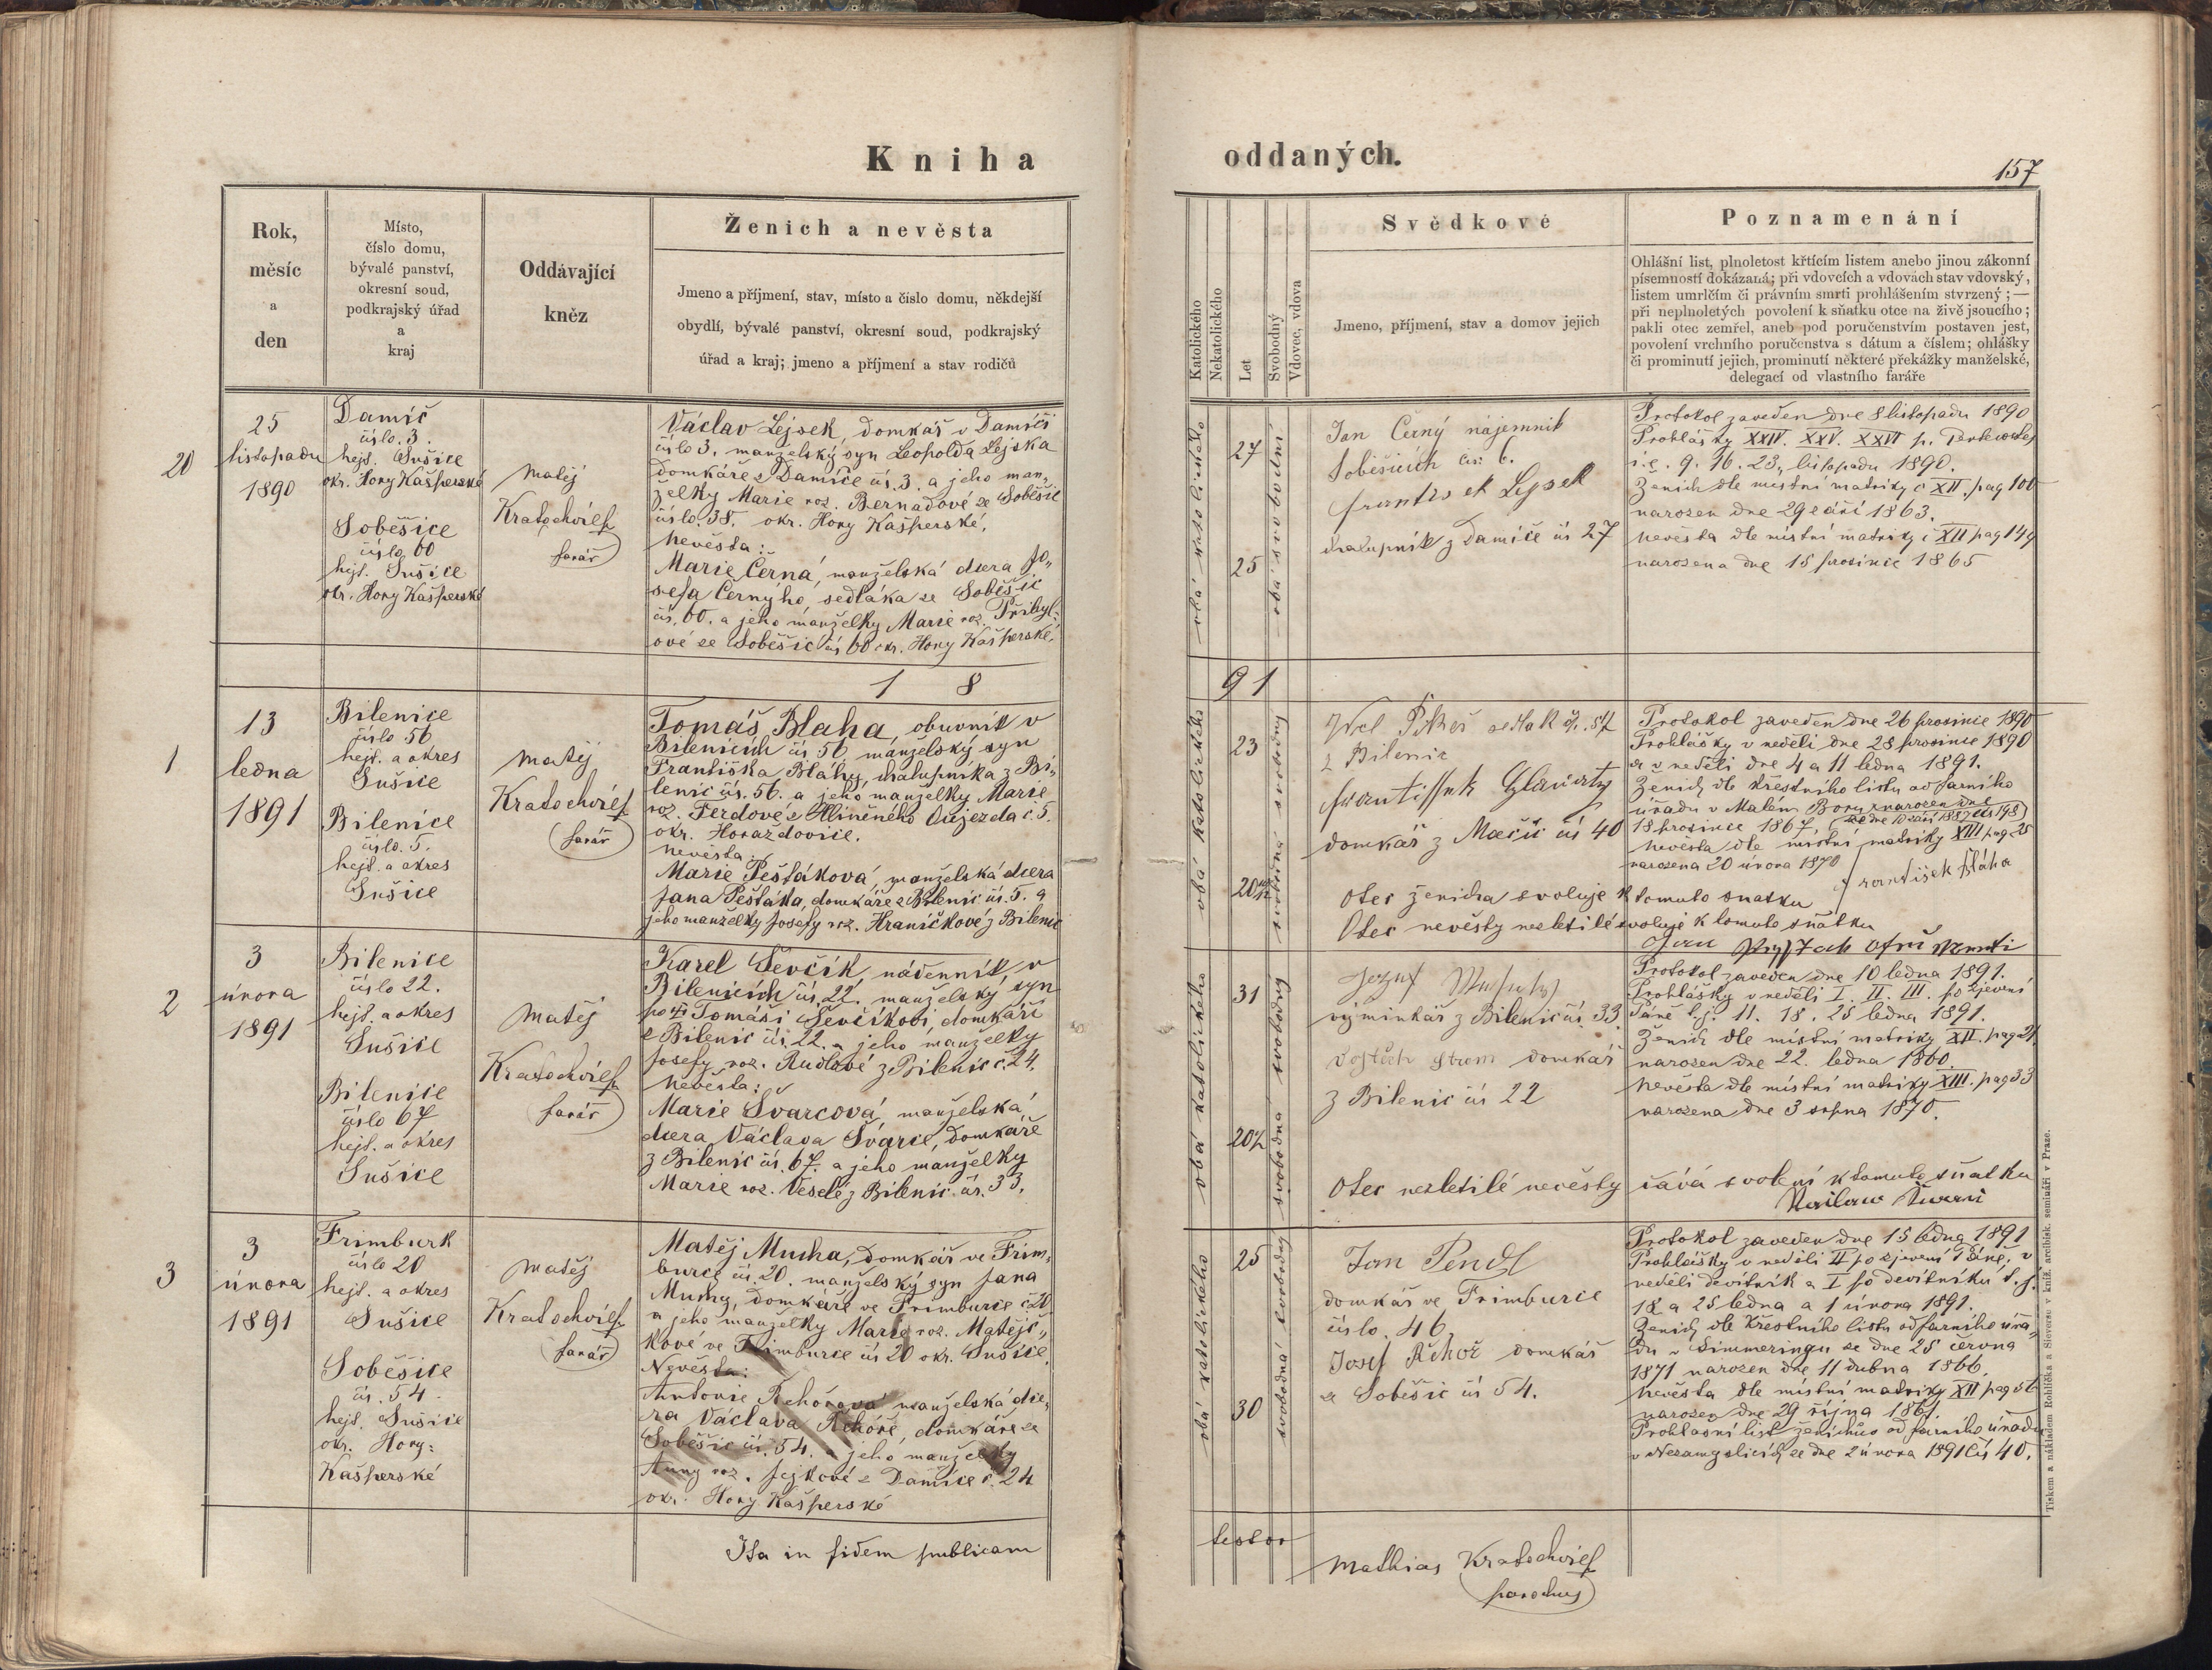 Kniha
oddaných.
157
Rok,
měsíc
a
den
Místo,
číslo domu,
bývalé panství,
okresní soud,
podkrajský úřad
a
kraj
Oddávající
kněz
Ženich a nevěsta
Jmeno a příjmení, stav, místo a číslo domu, někdejší
obydlí, bývalé panství, okresní soud, podkrajský
úřad a kraj; jmeno a příjmení a stav rodičů
Katolického
Nekatolického
Let
Svobodný
Vdovec, vdova
Svědkové
Jmeno, příjmení, stav a domov jejich
Poznamenání
Ohlášní list, plnoletost křtícím listem anebo jinou zákonní
písemností dokázaná; při vdovcích a vdovách stav vdovský,
listem umrlčím či právním smrti prohlášením stvrzený; —
při neplnoletých povolení k sňatku otce na živě jsoucího;
pakli otec zemřel, aneb pod poručenstvím postaven jest,
povolení vrchního poručenstva s dátum a číslem; ohlášky
či prominutí jejich, prominutí některé překážky manželské,
delegací od vlastního faráře
20
25
listopadu
1890
Damíč
číslo 3.
hejt. Sušice
okr. Hory Kašperské
Soběšice
číslo 60
hejt. Sušice
okr. Hory Kašperské
Matěj
Kratochvíl
farář
Václav Lejsek, domkař v Damíči
číslo 3, manželský syn Leopolda Lejska
domkáře z Damíče čís. 3. a jeho man„
želky Marie roz. Bernadové ze Soběšic
číslo 38. okr. Hory Kašperské.
Nevěsta:
Marie Černá, manželská dcera Jo„
sefa Černýho, sedláka ze Soběšic
čís. 60. a jeho manželky Marie roz. Přibyl„
ové ze Soběšic čís 60 okr. Hory Kašperské.
obá katolického
27
25
obá svobodní
Jan Černý nájemník
Soběšicích čís: 6.
frantisek Lejsek
chalupník z Damíče čís 27
Protokol zaveden dne 8 listopadu 1890
Prohlášky XXIV. XXV. XXVI p.
i.e. 9. 16. 23. listopadu 1890.
Ženich dle místní matriky č XII. pag 100
narozen dne 29 září 1863.
Nevěsta dle místní matriky č XII pag 149
narozena dne 15 prosince 1865
18
91
1
13
ledna
1891
Bilenice
číslo 56
hejt. a okres
Sušice
Bilenice
číslo 5.
hejt. a okres
Sušice
Matěj
Kratochvíl
farář
Tomáš Blaha, obuvník v
Bilenicích čís 56 manželský syn
Františka Bláhy, chalupníka z Bi„
lenic čís. 56. a jeho manželky Marie
roz. Ferdové z Hliněného Oujezda č. 5.
okr. Horažďovice.
Nevěsta:
Marie Pešťáková, manželská dcera
Jana Pešťáka, domkáře z Bilenic čís. 5. a
jeho manželky Josefy roz. Hraničkové z Bilenic
obá katolického
23
svobodná svobodný
sedlák čís. 57
z Bilenic
frantissek
domkář z Mačic čís 40
Otec ženicha svoluje k tomuto snatku
František Bláha
Otec nevěsty nezletilé svoluje k tomuto sňatku
Protokol zaveden dne 26 prosince 1890
Prohlášky v neděli dne 28 prosince 1890
a v neděli dne 4 a 11 ledna 1891.
Ženich dle křestního listu od farního
úřadu v Malém Boru narozen dne
18 prosince 1867,
Nevěsta dle místní matriky XIII pag 25
narozena 20 února 1870
2
3
února
1891
Bilenice
číslo 22.
hejt. a okres
Sušice
Bilenice
číslo 67
hejt. a okres
Sušice
Matěj
Kratochvíl
farář
Karel Ševčík, nádenník, v
Bilenicích čís. 22. manželský syn
po Tomáši Ševčíkovi, domkáři
z Bilenic čís. 22. a jeho manželky
Josefy roz. Rudlové z Bilenic č. 24.
Nevěsta:
Marie Švarcová, manželská
dcera Václava Švarce, domkáře
z Bilenic čís. 67. a jeho manželky
Marie roz. Veselé z Bilenic čís. 33.
obá katolického
31
20½
svobodná svobodný
Jozef
výminkář z Bilenic čís. 33.
domkář
z Bilenic čís 22
Protokol zaveden dne 10 ledna 1891.
Prohlášky v neděli I. II. III. po zjevení
Páně t.j. 11. 18. 25 ledna 1891.
Ženich dle místní matriky XII. pag 21
narozen dne 22. ledna 1860.
Nevěsta dle místní matriky XIII. pag 33
narozena dne 3 srpna 1870.
Otec nezletilé nevěsty dává svolení k tomuto sňatku
3
3
února
1891
Frimburk
číslo 20
hejt. a okres
Sušice
Soběšice
čís. 54.
hejt. Sušice
okr. Hory:
Kašperské
Matěj
Kratochvíl
farář
Matěj Mucha, domkář ve Frim„
burce čís. 20. manželský syn Jana
Muchy, domkáře ve Frimburce č 20
a jeho manželky Marie roz. Matějč„
kové ve Frimburce čís 20 okr. Sušice.
Nevěsta:
Antonie Řehořová manželská dce„
ra Václava Řehoře, domkáře ze
Soběšic čís. 54. a jeho manželky
Anny roz. Jejkové z Damíče č. 24
okr. Hory Kašperské
obá katolického
25
30
svobodná svobodný
Jan Pendl
domkář ve Frimburce
číslo 46
Josef Řehoř domkář
ze Soběšic čís 54.
Protokol zaveden dne 15 ledna 1891
Prohlášky v neděli II po zjevení Páně, v
neděli devítník a I po devítníku t.j.
18 a 25 ledna a 1 února 1891.
Ženich dle křestního listu od farního úřa„
du v Simmeringu ze dne 25 června
1871 narozen dne 11 dubna 1866.
Nevěsta dle místní matriky XII pag 56
narozen dne 29 října 1861.
Prohlasní list ženichův od farního úřadu
v Nezamyslicích ze dne 2 února 1891 čís 40.
Ita in fidem publicam
testor
Mathias Kratochvíl
parochus
Tiskem a nákladem Rohlíčka a Sieverse v kníž. arcibisk. semináři v Praze.